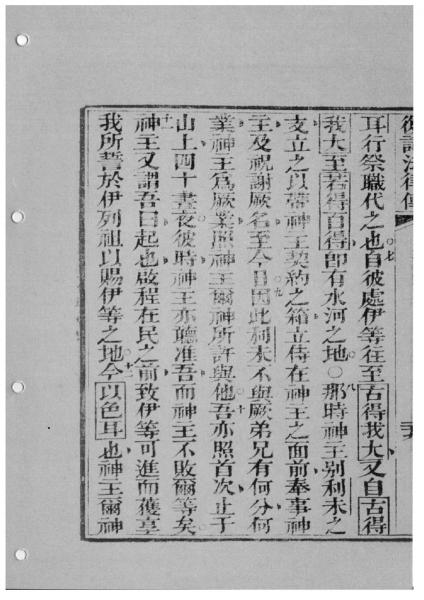 復講法律傳
耳行祭職代之也七自彼處伊等往至古得我大又自古得
我大至若得百得即有水河之地○八那時神主別利未之
支立之以帶神主契約之箱立侍在神主之面前奉事神
主及祝謝厥名至今日九因此利未不與厥弟兄有何分何
業神主爲厥業照神主爾神所許與他十吾亦照首次止于
山上四十晝夜彼時神主亦聽准吾而神主不敗爾等矣
十一神主又謂吾曰起也啟程在民之前致伊等可進而獲享
我所誓於伊列祖以賜伊等之地十二今以色耳也神主爾神